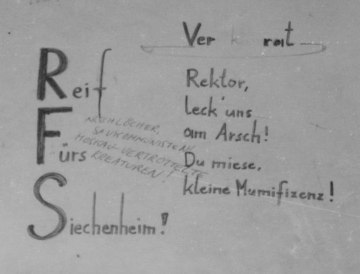 Reif
Fürs
Siechenheim!
ARSCHLÖCHER,
SAUKOMMUNISTEN
MOSKAU-VERTROTTELTE
KREATUREN!
Rektor,
leck'uns
am Arsch!
Du miese,
kleine Mumifizenz!